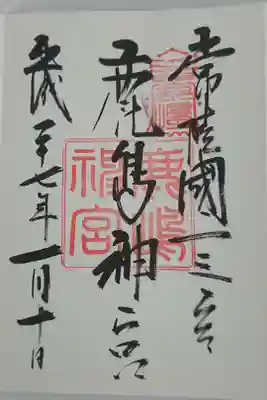 常陸國一之宮
鹿島神宮
平成二十七年一月十日
鹿嶋
神宮